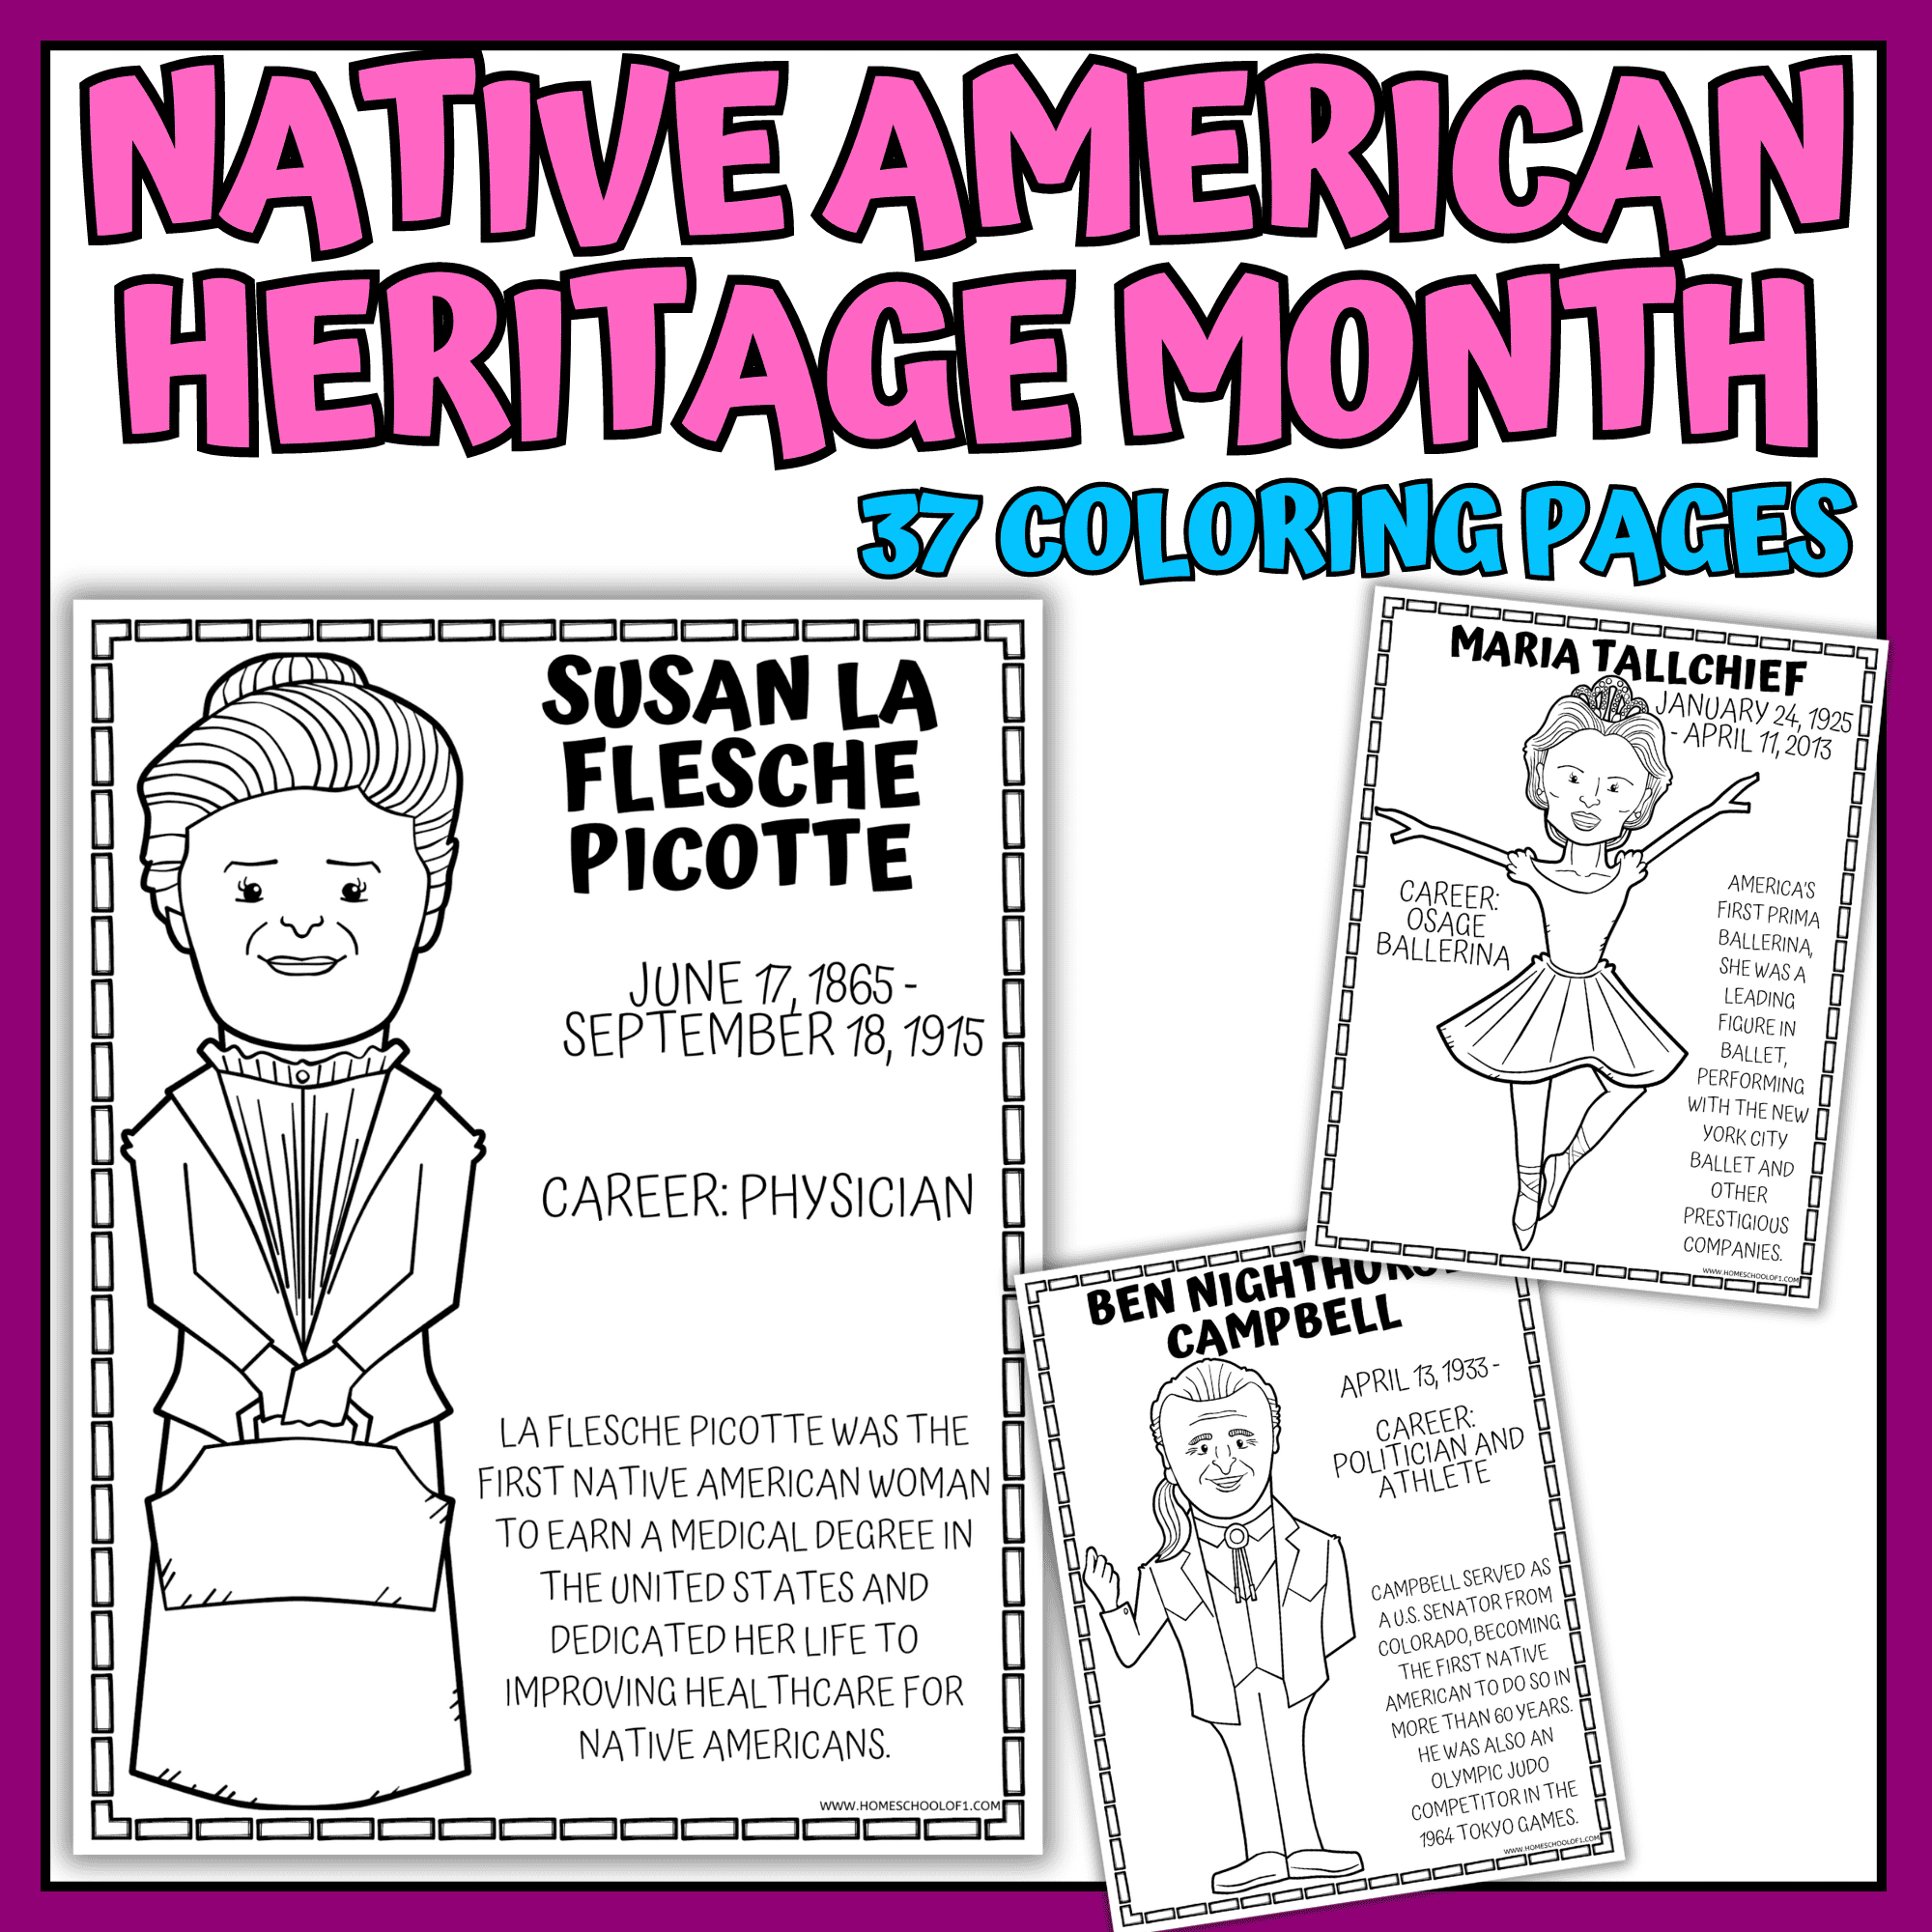 NATIVE AMERICAN
HERITAGE MONTH
37 COLORING PAGES
SUSAN LA
FLESCHE
PICOTTE
JUNE 17, 1865 -
SEPTEMBER 18, 1915
CAREER: PHYSICIAN
LA FLESCHE PICOTTE WAS THE
FIRST NATIVE AMERICAN WOMAN
TO EARN A MEDICAL DEGREE IN
THE UNITED STATES AND
DEDICATED HER LIFE TO
IMPROVING HEALTHCARE FOR
NATIVE AMERICANS.
WWW.HOMESCHOOLOF1.COM
MARIA TALLCHIEF
JANUARY 24, 1925
- APRIL 11, 2013
CAREER:
OSAGE
BALLERINA
AMERICA'S
FIRST PRIMA
BALLERINA,
SHE WAS A
LEADING
FIGURE IN
BALLET,
PERFORMING
WITH THE NEW
YORK CITY
BALLET AND
OTHER
PRESTIGIOUS
COMPANIES.
WWW.HOMESCHOOLOF1.COM
BEN NIGHTHORSE
CAMPBELL
APRIL 13, 1933 -
CAREER:
POLITICIAN AND
ATHLETE
CAMPBELL SERVED AS
A U.S. SENATOR FROM
COLORADO, BECOMING
THE FIRST NATIVE
AMERICAN TO DO SO IN
MORE THAN 60 YEARS.
HE WAS ALSO AN
OLYMPIC JUDO
COMPETITOR IN THE
1964 TOKYO GAMES.
WWW.HOMESCHOOLOF1.COM